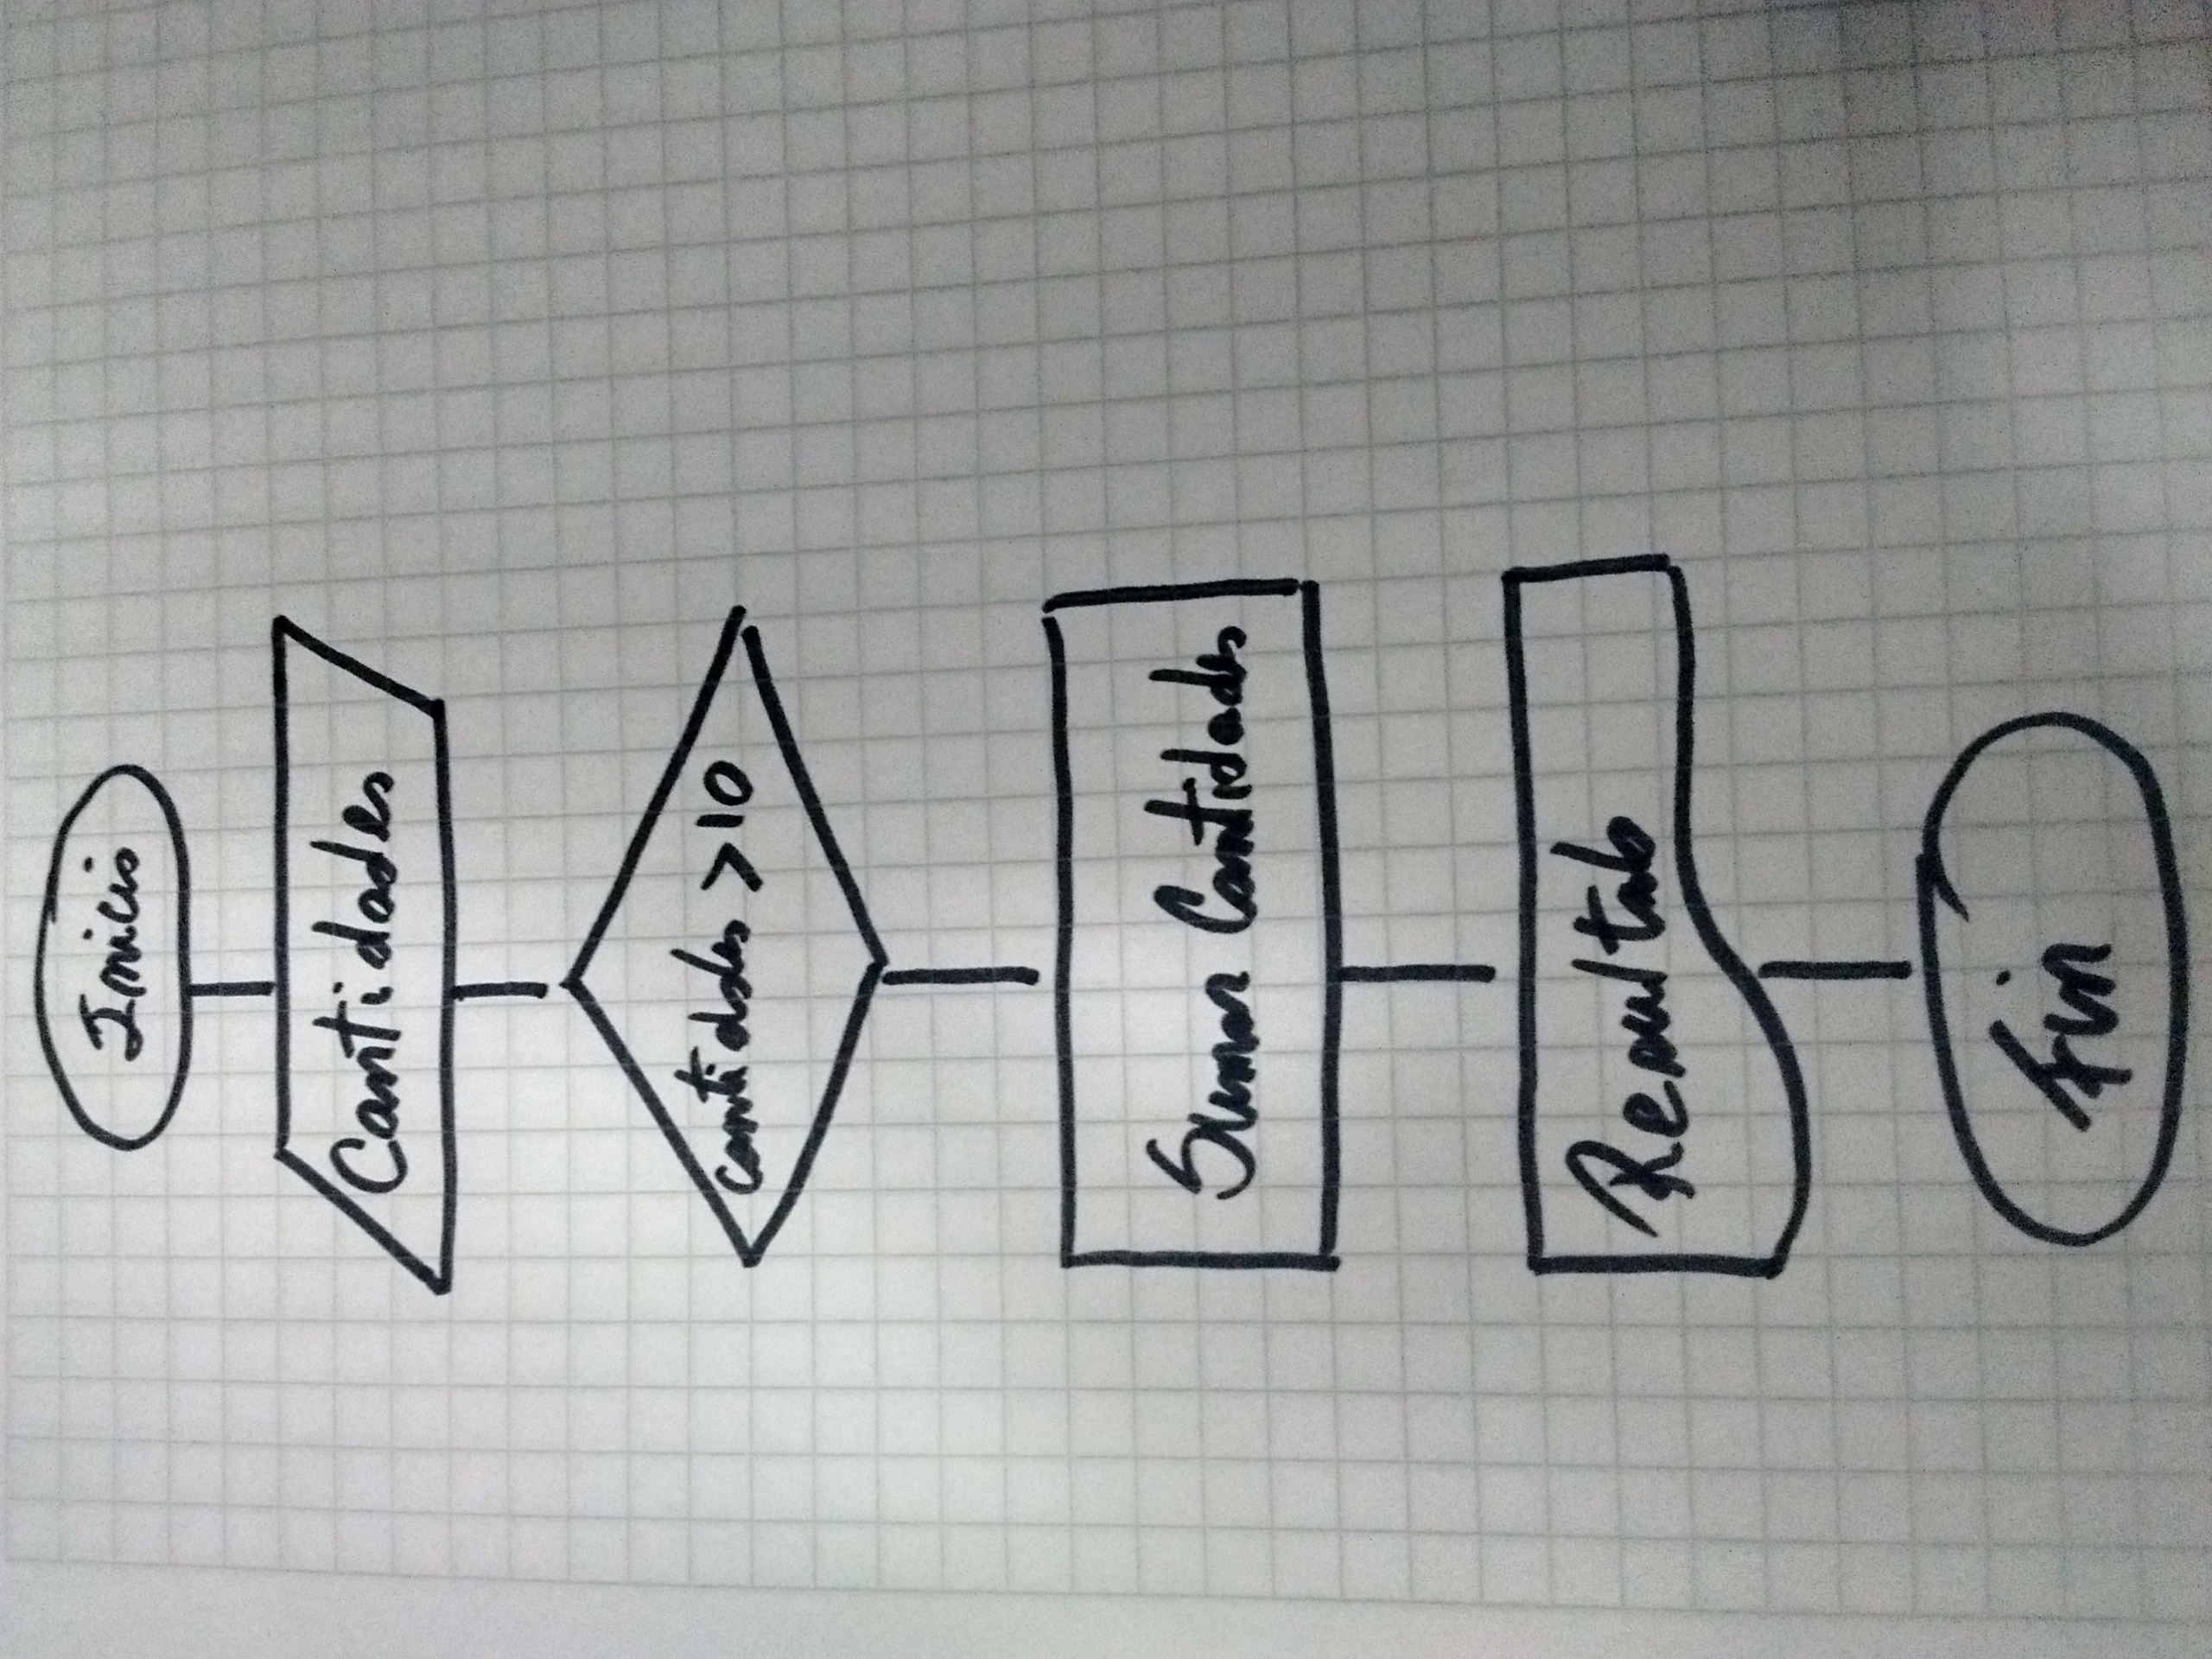 Inicio
Cantidades
cantidades >10
Sumar Cantidades
Resultado
Fin